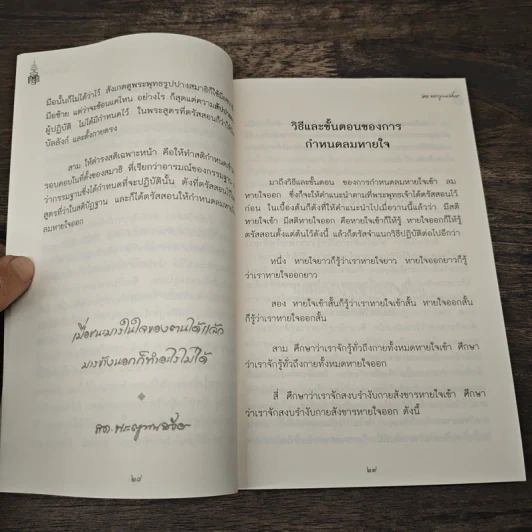 มือนั้นก็ไม่ได้ว่าไว้ สังเกตดูพระพุทธรูปปางสมาธิก็ใช้มือขวา
มือซ้าย แต่ว่าจะซ้อนแค่ไหน อย่างไร ก็สุดแต่ความสัปปายะ
ผู้ปฏิบัติ ไม่ได้มีกำหนดไว้ ในพระสูตรที่ตรัสสอนก็ว่า
บัลลังก์ และตั้งกายตรง
สาม ให้ดำรงสติเฉพาะหน้า คือให้ทำสติกำหนด
รอบคอบในที่ตั้งของสมาธิ ที่เรียกว่าอารมณ์ของกรรมฐาน
ว่ากรรมฐานซึ่งได้กำหนดที่จะปฏิบัตินั้น ดังที่ตรัสสอนไว้
สูตรที่ว่าในสติปัฏฐาน และก็ได้ตรัสสอนให้กำหนด
ลมหายใจออก
เมื่อชนะมารในใจของตนได้แล้ว
มารข้างนอกก็ทำอะไรไม่ได้
๒๘
วิธีและขั้นตอนของการ
กำหนดลมหายใจ
มาถึงวิธีและขั้นตอน ของการกำหนดลมหายใจเข้า ลม
หายใจออก ซึ่งก็จะให้คำแนะนำตามที่พระพุทธเจ้าได้ตรัสสอนไว้
ก่อน ในเบื้องต้นก็ดังที่ให้คำแนะนำไปเมื่อวานนี้แล้วว่า มีสติ
หายใจเข้า มีสติหายใจออก คือหายใจเข้าก็ให้รู้ หายใจออกก็ให้รู้
ตรัสสอนตั้งแต่ต้นไว้ดังนี้ แล้วก็ตรัสจำแนกวิธีปฏิบัติต่อไปอีกว่า
หนึ่ง หายใจยาวก็รู้ว่าเราหายใจยาว หายใจออกยาวก็รู้
ว่าเราหายใจออกยาว
สอง หายใจเข้าสั้นก็รู้ว่าเราหายใจเข้าสั้น หายใจออกสั้น
ก็รู้ว่าเราหายใจออกสั้น
สาม ศึกษาว่าเราจักรู้ทั่วถึงกายทั้งหมดหายใจเข้า ศึกษา
ว่าเราจักรู้ทั่วถึงกายทั้งหมดหายใจออก
สี่ ศึกษาว่าเราจักสงบรำงับกายสังขารหายใจเข้า ศึกษา
ว่าเราจักสงบรำงับกายสังขารหายใจออก ดังนี้
๒๙